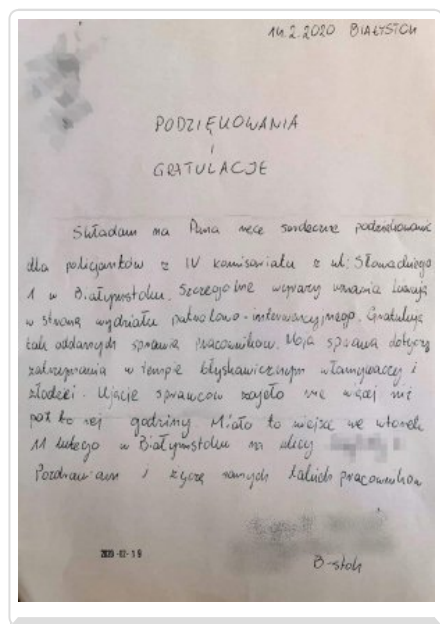 14.2.2020 BIAŁYSTOK
PODZIĘKOWANIA
i
GRATULACJE
Składam na Pana ręce serdeczne podziękowanie
dla policjantów z IV komisariatu z ul. Słowackiego
1 w Białymstoku. Szczególne wyrazy uznania kieruję
w stronę wydziału patrolowo-interwencyjnego. Gratuluję
tak oddanych sprawie pracowników. Moja sprawa dotyczy
zatrzymania w tempie błyskawicznym włamywaczy i
złodziei. Ujęcie sprawców zajęło nie więcej niż
pół to rej godziny. Miało to miejsce we wtorek
11 lutego w Białymstoku na ulicy
Pozdrawiam i życzę samych takich pracowników
2020 -02- 19
B-stok